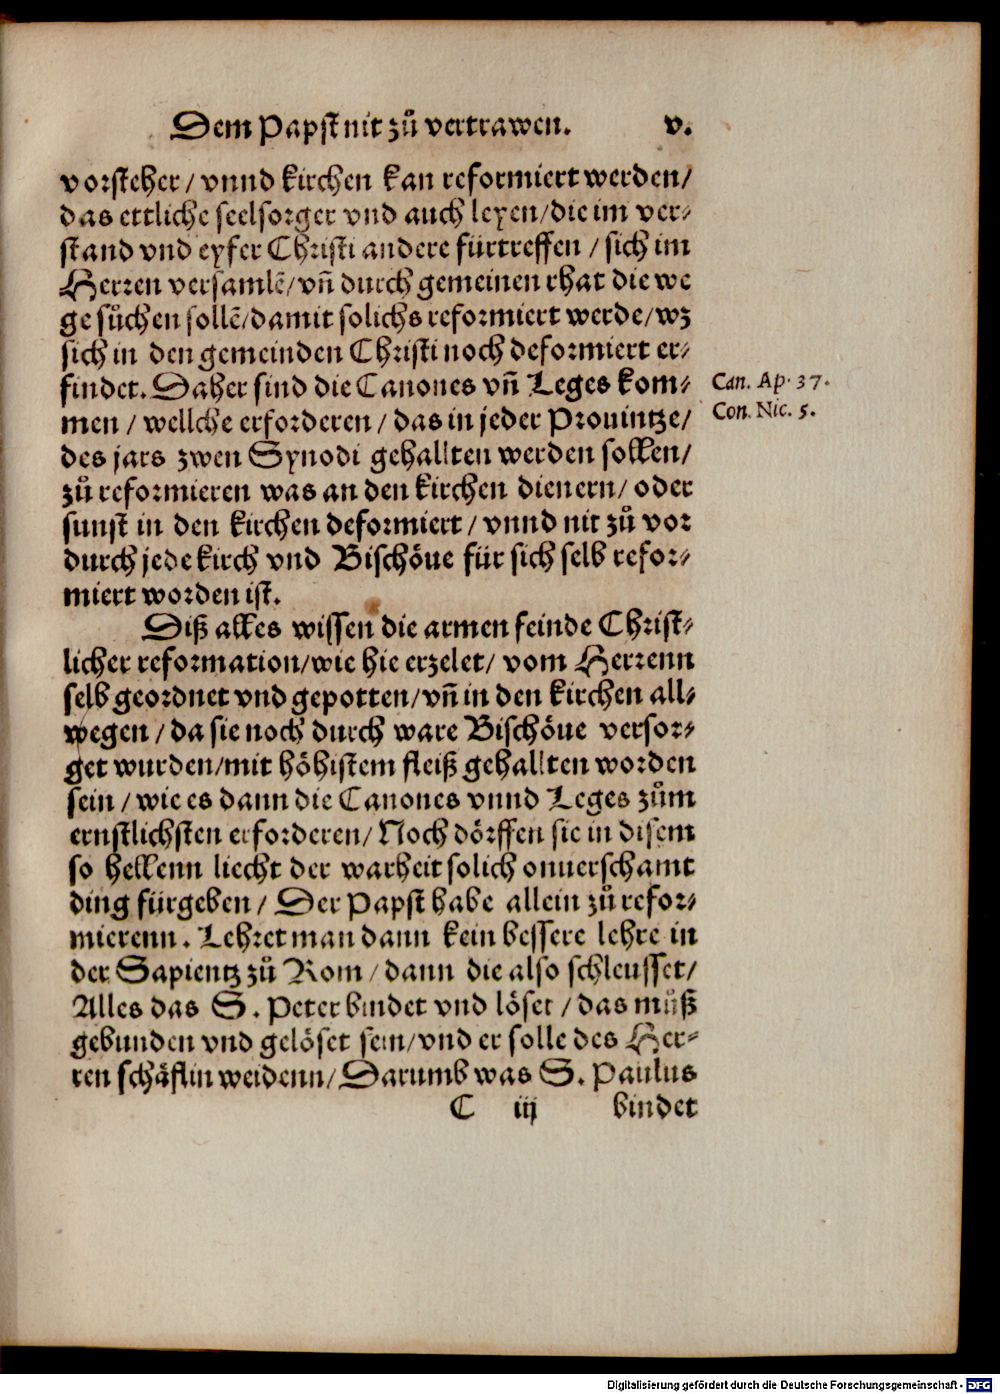 Dem Papst nit zů vertrawen. v.
vorsteher / vnnd kirchen kan reformiert werden /
das ettliche seelsorger vnd auch leyen / die im ver⸗
stand vnd eyfer Christi andere fürtreffen / sich im
Herren versamlē / vn̄ durch gemeinen rhat die we
ge sůchen sollē / damit solichs reformiert werde / wz
sich in den gemeinden Christi noch deformiert er⸗
findet. Daher sind die Canones vn̄ Leges kom⸗
Can. Ap. 37.
men / wellche erforderen / das in jeder Prouintze /
Con. Nic. 5.
des jars zwen Synodi gehallten werden sollen /
zů reformieren was an den kirchen dienern / oder
sunst in den kirchen deformiert / vnnd nit zů vor
durch jede kirch vnd Bischöue für sich selb refor⸗
miert worden ist.
Diß alles wissen die armen feinde Christ⸗
licher reformation / wie hie erzelet / vom Herrenn
selb geordnet vnd gepotten / vn̄ in den kirchen all⸗
wegen / da sie noch durch ware Bischöue versor⸗
get wurden / mit höhistem fleiß gehallten worden
sein / wie es dann die Canones vnnd Leges zům
ernstlichsten erforderen / Noch dörffen sie in disem
so hellenn liecht der warheit solich onuerschamt
ding fürgeben / Der Papst habe allein zů refor⸗
mierenn. Lehret man dann kein bessere lehre in
der Sapientz zů Rom / dann die also schleusset /
Alles das S. Peter bindet vnd löset / das můß
gebunden vnd gelöset sein / vnd er solle des Her⸗
ren schäflin weidenn / Darumb was S. Paulus
C iij bindet
Digitalisierung gefördert durch die Deutsche Forschungsgemeinschaft - DFG